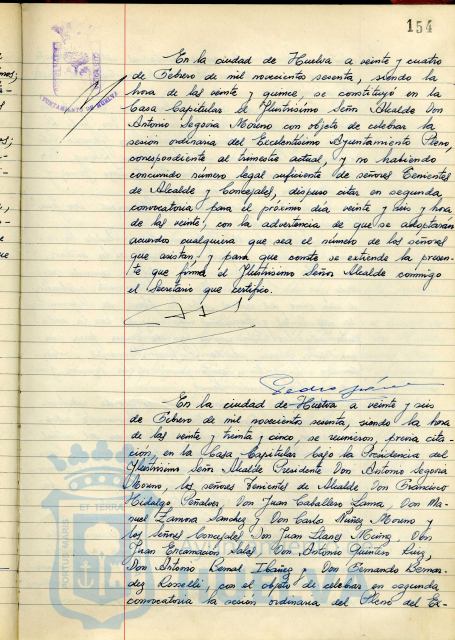 154
En la ciudad de Huelva a veinte y cuatro
de Febrero de mil novecientos sesenta, siendo la
hora de las veinte y quince, se constituyó en la
Casa Capitular el Ilustrísimo Señor Alcalde Don
Antonio Segovia Moreno con objeto de celebrar la
sesión ordinaria del Excelentísimo Ayuntamiento Pleno,
correspondiente al trimestre actual, y no habiendo
concurrido número legal suficiente de señores Tenientes
de Alcalde y Concejales, dispuso citar en segunda
convocatoria para el próximo día veinte y seis y hora
de las veinte, con la advertencia de que se adoptarán
acuerdos cualquiera que sea el número de los señores
que asistan, y para que conste se extiende la presen-
te que firma el Ilustrísimo Señor Alcalde conmigo
el Secretario que certifico.
Pedro
En la ciudad de Huelva a veinte y seis
de Febrero de mil novecientos sesenta, siendo la hora
de las veinte y treinta y cinco, se reunieron, previa cita-
ción, en la Casa Capitular bajo la Presidencia del
Ilustrísimo Señor Alcalde Presidente Don Antonio Segovia
Moreno, los señores Tenientes de Alcalde Don Francisco
Hidalgo Peñalver, Don Juan Caballero Lama, Don Ma-
nuel Zamora Sánchez y Don Carlos Núñez Moreno y
los señores Concejales Don Juan Llanes Don
Juan Encarnación Salas, Don Antonio Quintero Ruiz,
Don Antonio Bernal Ibáñez y Don Fernando Bermu-
dez Rosselli, con el objeto de celebrar en segunda
convocatoria la sesión ordinaria del Pleno del Ex-